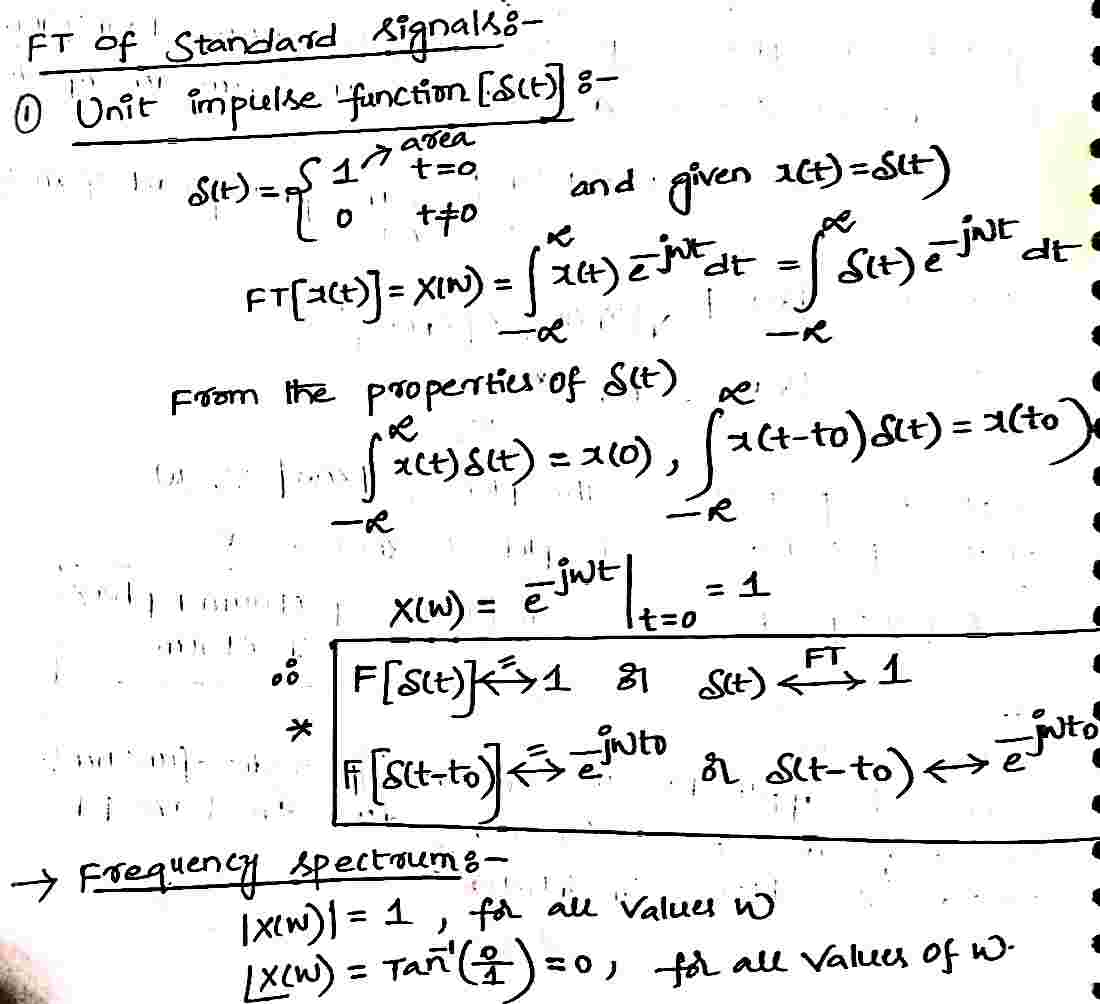 FT of Standard signals:-
① Unit impulse function [δ(t)] :-
δ(t) = { 1 → area t=0, 0 t≠0 and given x(t) = δ(t)
FT[x(t)] = X(w) = ∫_{-∞}^{∞} x(t) e^{-jwt} dt = ∫_{-∞}^{∞} δ(t) e^{-jwt} dt
From the properties of δ(t)
∫_{-∞}^{∞} x(t) δ(t) = x(0), ∫_{-∞}^{∞} x(t-t0) δ(t) = x(t0)
X(w) = e^{-jwt} |_{t=0} = 1
∴ F[δ(t)] ⟷= 1 or δ(t) ⟷FT 1
* F[δ(t-t0)] ⟷= e^{-jwt0} or δ(t-t0) ⟷ e^{-jwt0}
→ Frequency spectrum:-
|X(w)| = 1, for all values w
∠X(w) = Tan^{-1}(0/1) = 0, for all values of w.